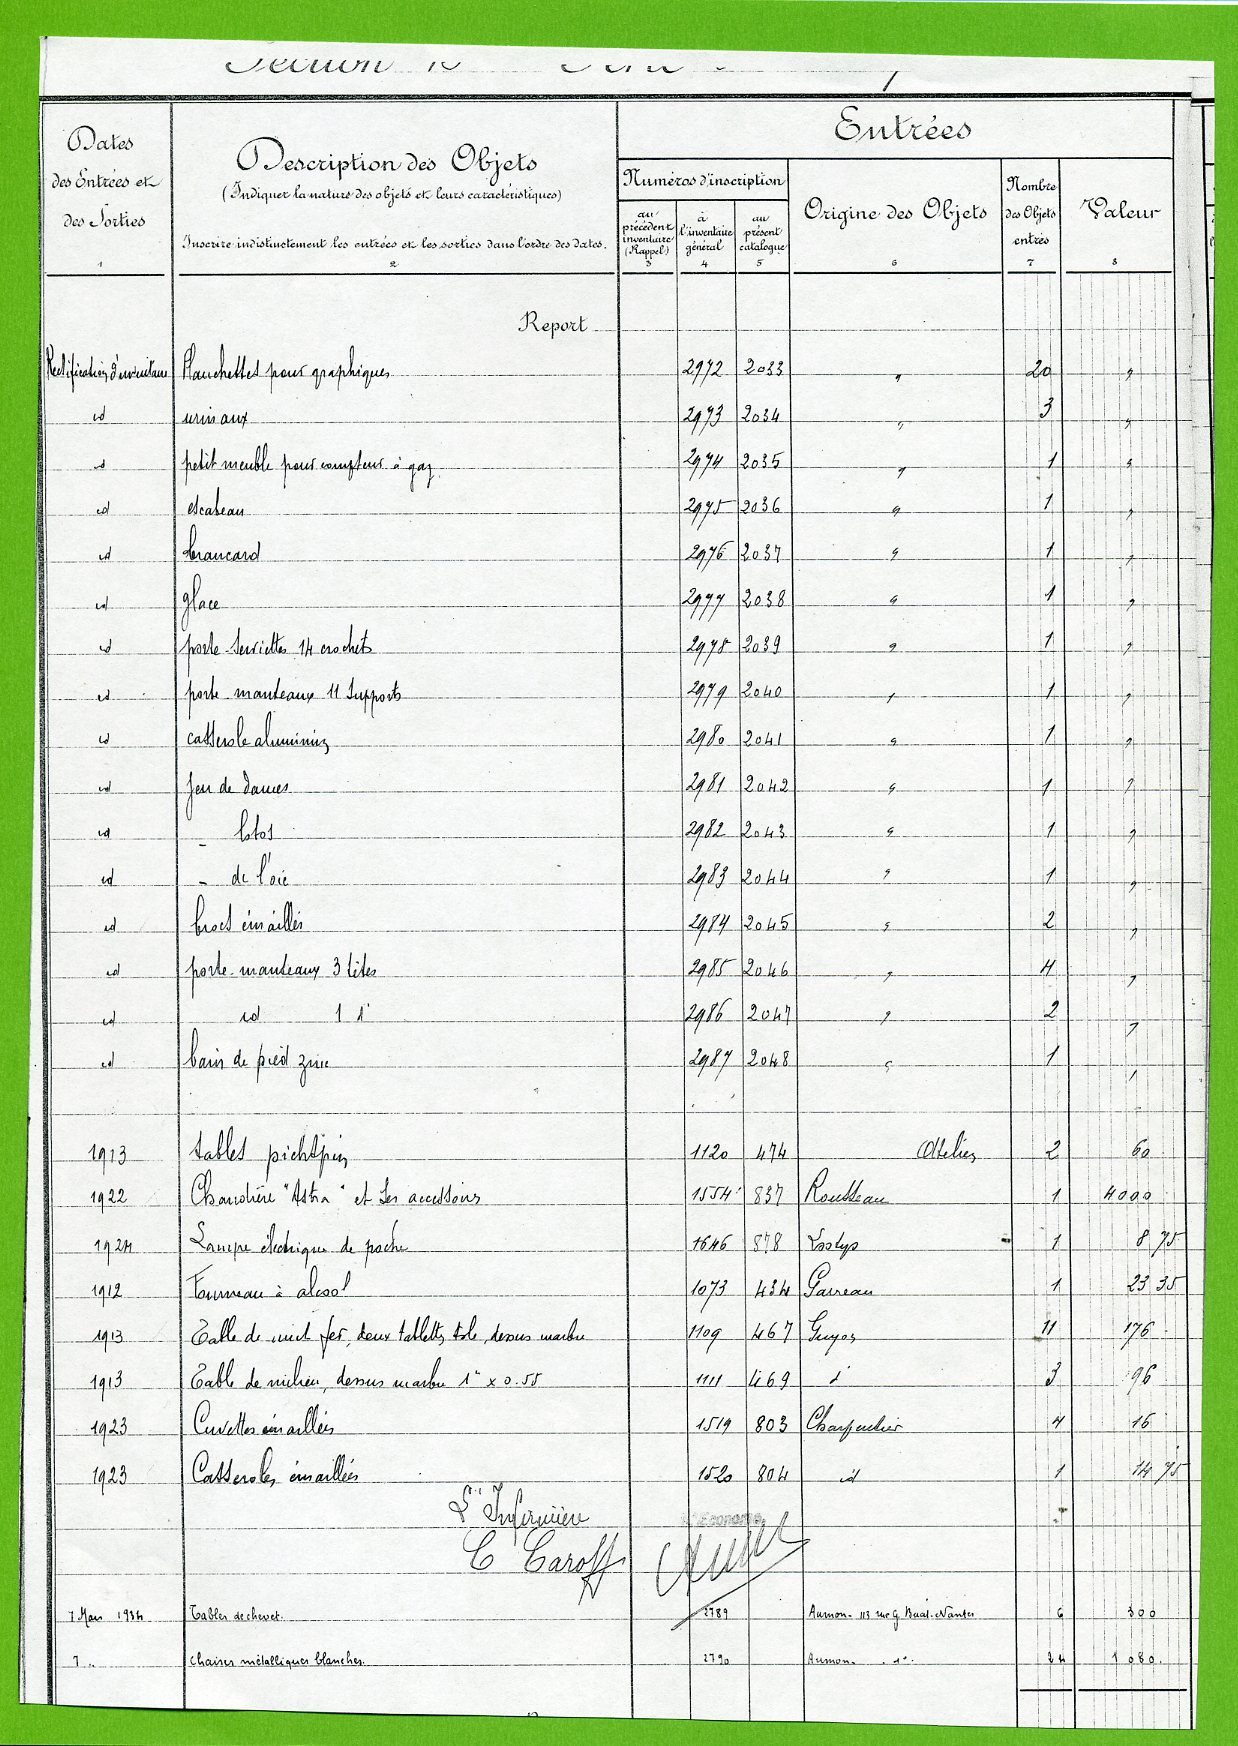 Section
Entrées
Dates
des Entrées et
des Sorties
Description des Objets
(Indiquer la nature des objets et leurs caractéristiques)
Inscrire indistinctement les entrées et les sorties dans l'ordre des dates.
Numéros d'inscription
au précédent inventaire (Rappel)
à l'inventaire général
au présent catalogue
Origine des Objets
Nombre des Objets entrés
Valeur
1 2 3 4 5 6 7 8
Report
Rectification d'inventaire Planchettes pour graphiques 2972 2033 " 20 "
id urinaux 2973 2034 " 3 "
id petit meuble pour compteur à gaz 2974 2035 " 1 "
id escabeau 2975 2036 " 1 "
id brancard 2976 2037 " 1 "
id glace 2977 2038 " 1 "
id porte-serviettes 14 crochets 2978 2039 " 1 "
id porte-manteaux 11 supports 2979 2040 " 1 "
id casserole aluminium 2980 2041 " 1 "
id Jeu de dames 2981 2042 " 1 "
id - lotos 2982 2043 " 1 "
id - de l'oie 2983 2044 " 1 "
id brocs émaillés 2984 2045 " 2 "
id porte-manteaux 3 têtes 2985 2046 " 4 "
id id 1 d° 2986 2047 " 2 "
id bain de pied zinc 2987 2048 " 1 "
1913 tables pichtpin 1120 474 Atelier 2 60
1922 Chaudière "Astra" et ses accessoires 1554 837 Rousseau 1 4000
1924 Lampe électrique de poche 1646 878 1 8 75
1912 Fourneau à alcool 1073 434 Garreau 1 23 35
1913 Table de nuit fer, deux tablettes tole, dessus marbre 1109 467 Guyos 11 176
1913 Table de milieu, dessus marbre 1m x 0.55 1111 469 d° 3 96
1923 Cuvettes émaillées 1519 803 Charpentier 4 16
1923 Casseroles émaillées 1520 804 id 1 14 75
L'Infirmière
L'Econome
C Caroff
7 Mars 1934 Tables de chevet. 2789 Aumon - 113 rue G. Buat. Nantes 6 300
7 " chaises métalliques blanches. 2790 Aumon - d° 24 1 080.